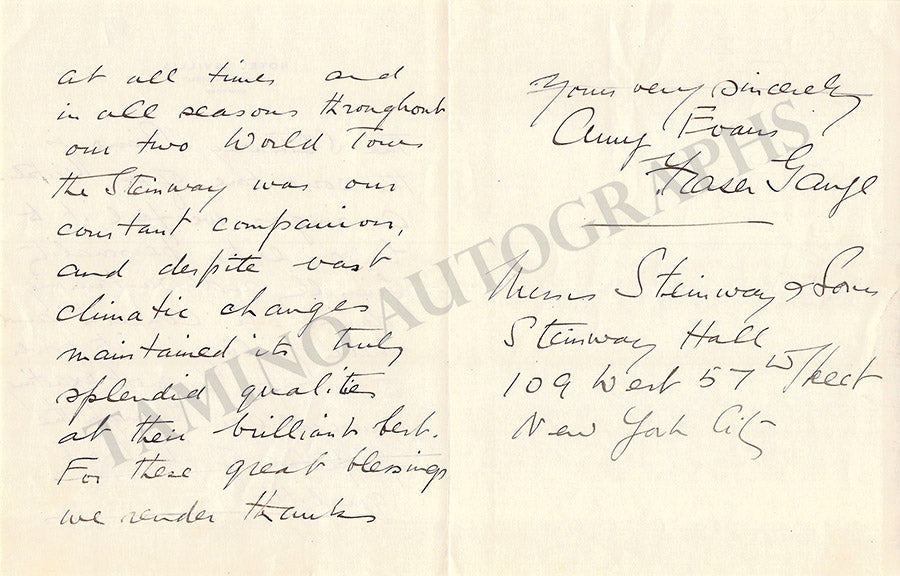 at all times and
in all seasons throughout
our two World Tours
the Steinway was our
constant companion,
and despite vast
climatic changes
maintained its truly
splendid qualities
at their brilliant best.
For these great blessings
we render thanks
Yours very sincerely
Amy Evans
Fraser Gange
Messrs Steinway & Sons
Steinway Hall
109 West 57th Street
New York City
TAMINO AUTOGRAPHS